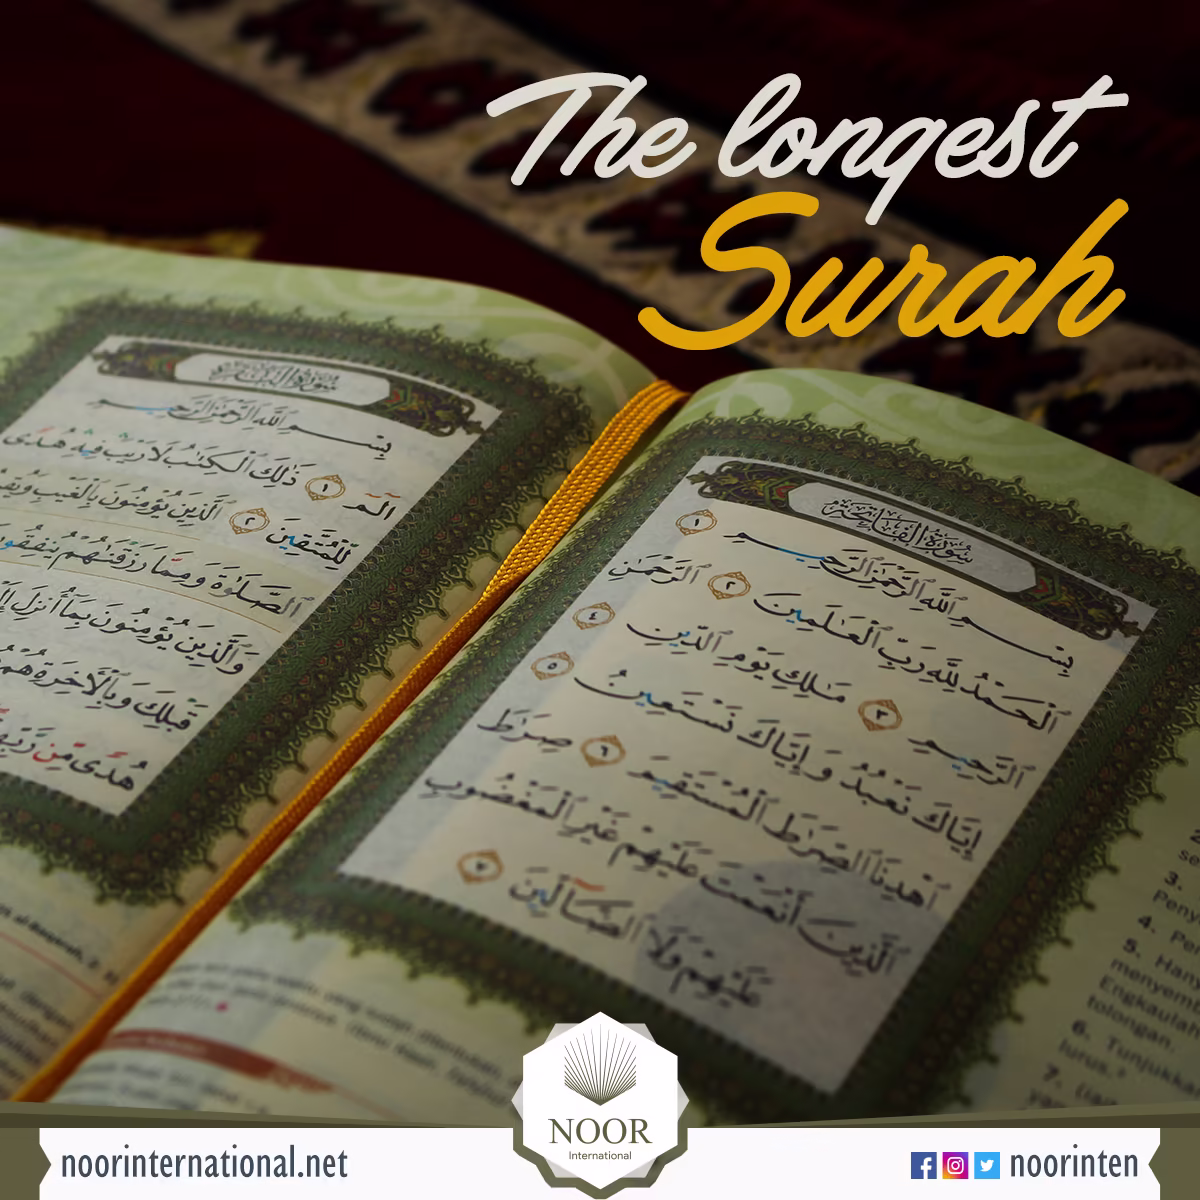 The longest
Surah
سورة الفاتحة
بِسْمِ ٱللَّهِ ٱلرَّحْمَٰنِ ٱلرَّحِيمِ ١
ٱلْحَمْدُ لِلَّهِ رَبِّ ٱلْعَٰلَمِينَ ٢ ٱلرَّحْمَٰنِ
ٱلرَّحِيمِ ٣ مَٰلِكِ يَوْمِ ٱلدِّينِ ٤
إِيَّاكَ نَعْبُدُ وَإِيَّاكَ نَسْتَعِينُ ٥
ٱهْدِنَا ٱلصِّرَٰطَ ٱلْمُسْتَقِيمَ ٦ صِرَٰطَ
ٱلَّذِينَ أَنْعَمْتَ عَلَيْهِمْ غَيْرِ ٱلْمَغْضُوبِ
عَلَيْهِمْ وَلَا ٱلضَّآلِّينَ ٧
سورة البقرة
بِسْمِ ٱللَّهِ ٱلرَّحْمَٰنِ ٱلرَّحِيمِ
الٓمٓ ١ ذَٰلِكَ ٱلْكِتَٰبُ لَا رَيْبَ فِيهِ هُدًى
لِّلْمُتَّقِينَ ٢ ٱلَّذِينَ يُؤْمِنُونَ بِٱلْغَيْبِ
ٱلصَّلَوٰةَ وَمِمَّا رَزَقْنَٰهُمْ يُنفِقُونَ
وَٱلَّذِينَ يُؤْمِنُونَ بِمَآ أُنزِلَ
قَبْلِكَ وَبِٱلْءَاخِرَةِ هُمْ
هُدًى مِّن
3.
4.
5.
menyem
Engkaulah
tolongan.
6. Tunjukka
lurus,
7.
NOOR
International
noorinternational.net
noorinten